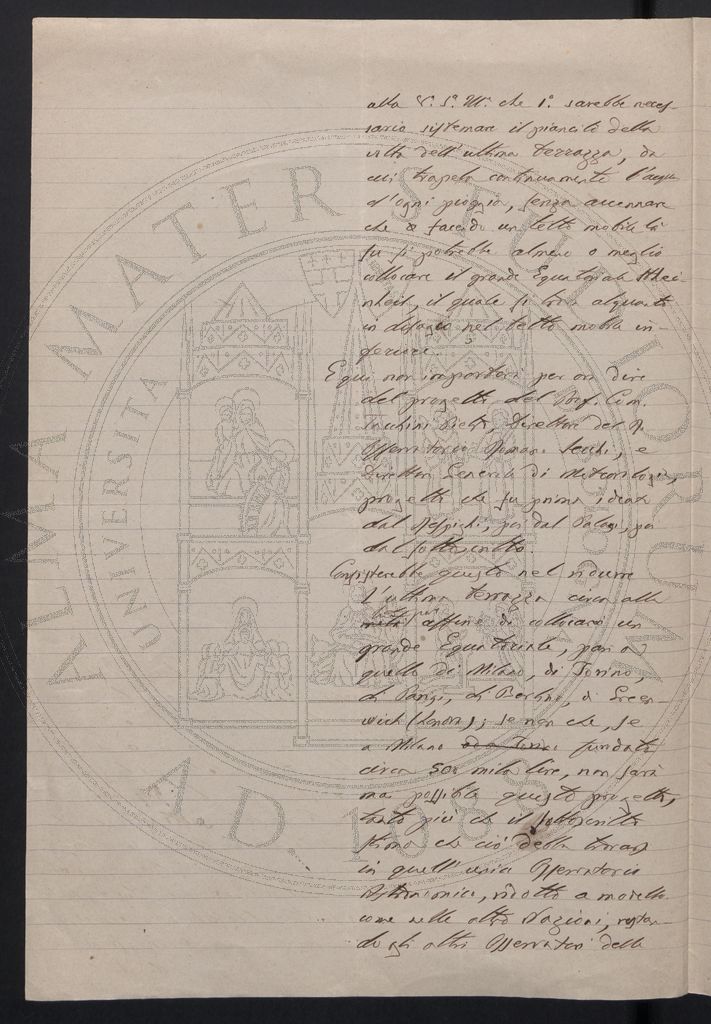 alla V. S. Ill. che 1°. sarebbe neces-
sario sistemare il piancito della
volta dell'ultima terrazza, da
cui trapela continuamente l'acqua
d'ogni pioggia, senza accennare
che facendo un tetto mobile là
su si potrebbe almeno o meglio
collocare il grande Equatoriale Stei-
nheil, il quale si trova alquanto
in disagio nel tetto mobile in-
feriore.
E qui non importerà per ora dire
del progetto del Prof. Com.
Tacchini Pietro, Direttore del R.
Osservatorio Romano, e
Direttore Generale di Meteorologia,
progetto che fu prima ideato
dal Respighi, poi dal Palagi, poi
dal sottoscritto.
Consisterebbe questo nel ridurre
l'ultima terrazza circa alla
metà affine di collocarci un
grande Equatoriale, pari a
quello di Milano, di Torino,
di Parigi, di Berlino, di Green-
wich (Londra); se non che, se
a Milano ed a Torino
circa 500 mila lire, non sarà
mai possibile questo progetto,
tanto più che il sottoscritto
stima che ciò debba trovarsi
in quell'unico Osservatorio
Astronomico, ridotto a modello
come nelle altre Nazioni, restan-
do gli altri Osservatori delle
ALMA MATER STUDIORUM
UNIVERSITA
A.D. 1088